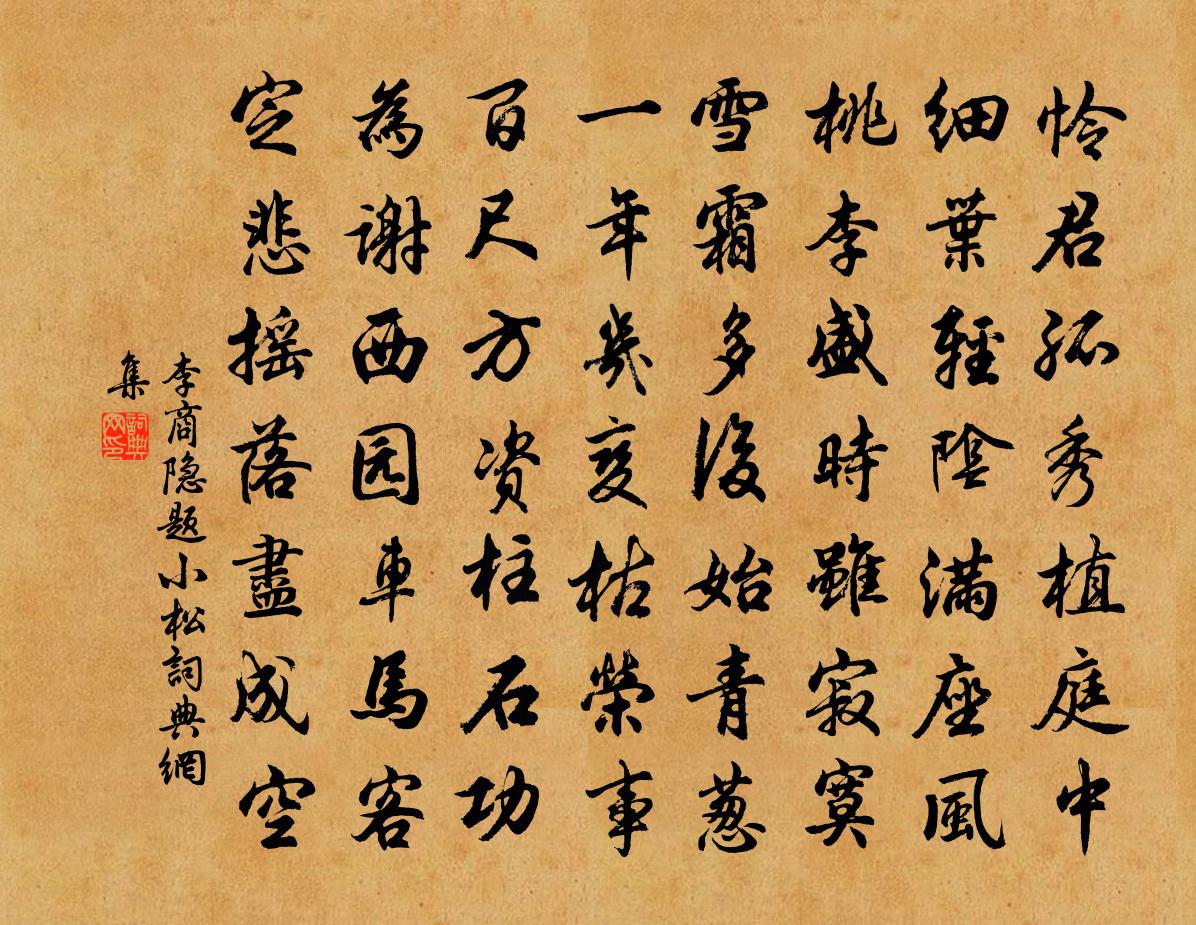 怜君孤秀植庭中
细葉輕陰满座風
桃李盛時雖寂寞
雪霜多後始青葱
一年幾变枯榮事
百尺方资柱石功
為謝西园車馬客
定悲摇落盡成空
李商隐题小松詞典網
集
詞典
网印